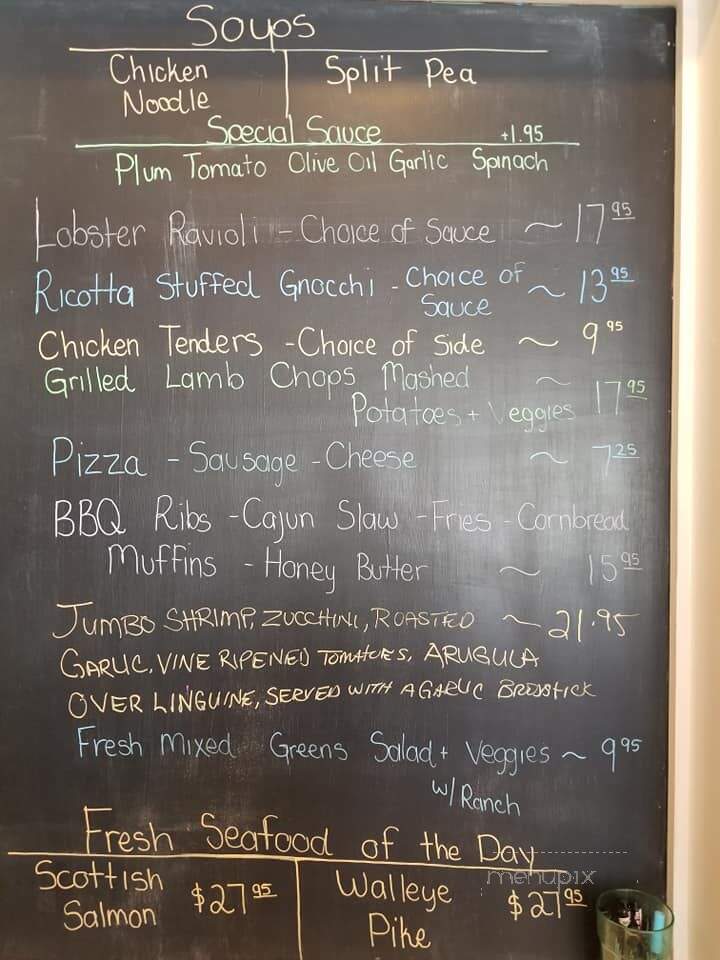 Soups
Chicken Noodle
Split Pea
Special Sauce +1.95
Plum Tomato Olive Oil Garlic Spinach
Lobster Ravioli - Choice of Sauce ~ 17 95
Ricotta Stuffed Gnocchi - Choice of Sauce ~ 13 95
Chicken Tenders - Choice of Side ~ 9 95
Grilled Lamb Chops Mashed ~
Potatoes + Veggies 17 95
Pizza - Sausage - Cheese ~ 7 25
BBQ Ribs - Cajun Slaw - Fries - Cornbread
Muffins - Honey Butter ~ 15 95
JUMBO SHRIMP, ZUCCHINI, ROASTED ~ 21.95
GARLIC, VINE RIPENED TOMATOES, ARUGULA
OVER LINGUINE, SERVED WITH A GARLIC BREDSTICK
Fresh Mixed Greens Salad + Veggies ~ 9 95
w/ Ranch
Fresh Seafood of the Day
Scottish Salmon $27 95
Walleye Pike $27 95
menupix